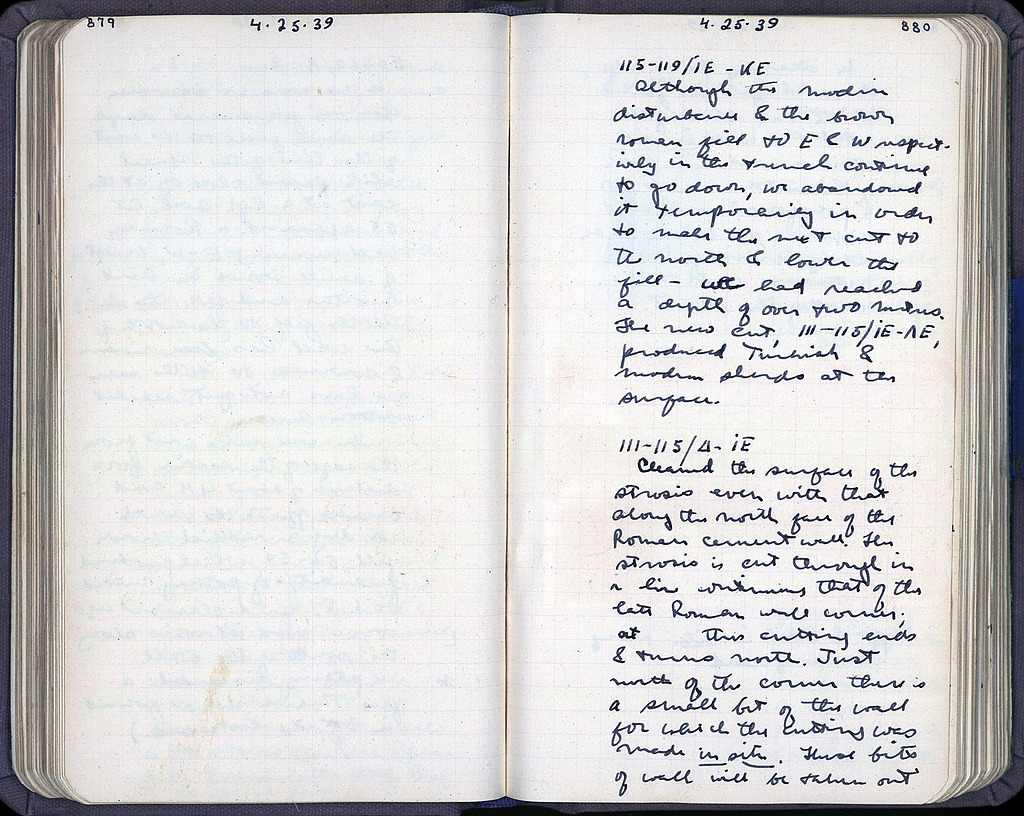 879
4.25.39
4.25.39
880
115-119/ΙΕ - ΚΕ
Although the modern
disturbance & the brown
roman fill to E & W respect-
ively in the trench continue
to go down, we abandoned
it temporarily in order
to make the next cut to
the north & lower the
fill - we had reached
a depth of over two metres.
The new cut, 111-115/ΙΕ-ΛΕ,
produced Turkish &
modern sherds at the
surface.
111-115/Δ-ΙΕ
Cleaned the surface of the
strosis even with that
along the north face of the
Roman cement wall. The
strosis is cut through in
a line continuing that of the
late Roman wall corner;
at this cutting ends
& turns north. Just
north of the corner there is
a small bit of the wall
for which the cutting was
made in situ. These bits
of wall will be taken out